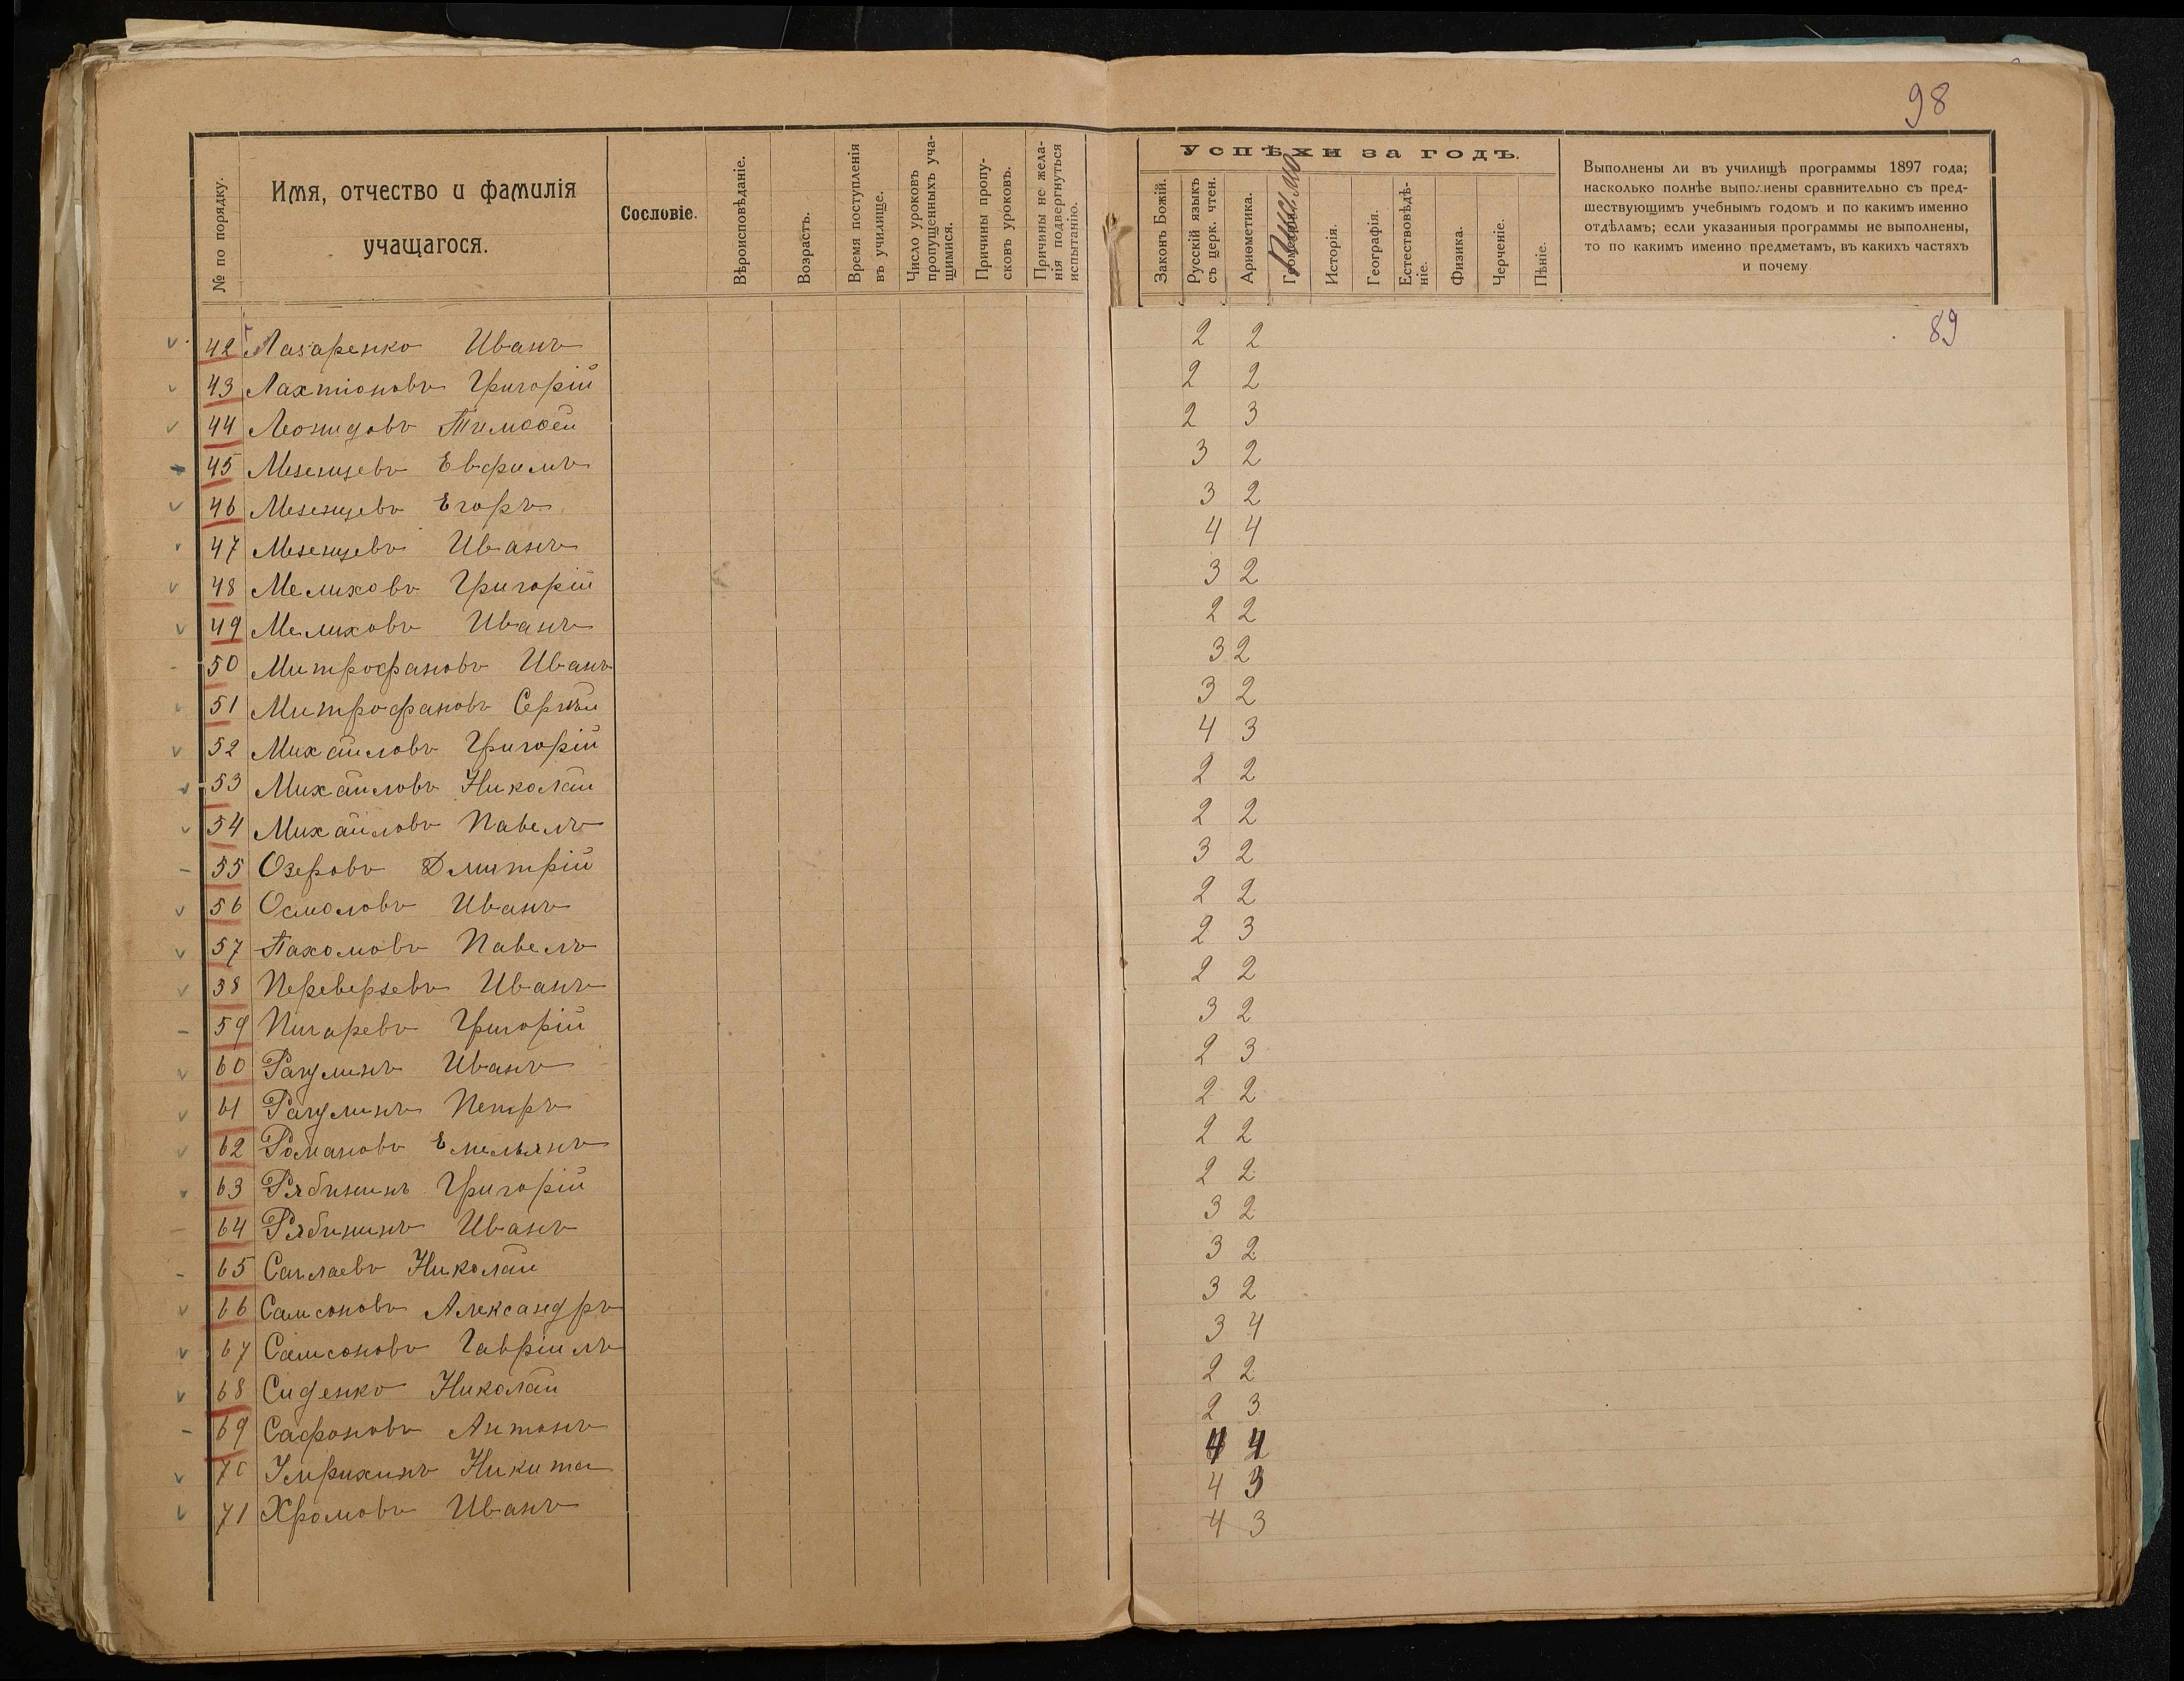 98
№ по порядку.
Имя, отчество и фамилія
учащагося.
Сословіе.
Вѣроисповѣданіе.
Возрастъ.
Время поступленія
въ училище.
Число уроковъ
пропущенныхъ уча-
щимися.
Причины пропу-
сковъ уроковъ.
Причины не жела-
нія подвергнуться
испытанію.
Успѣхи за годъ.
Законъ Божій.
Русскій языкъ
съ церк. чтен.
Ариѳметика.
Письмо
Исторія.
Географія.
Естествовѣдѣ-
ніе.
Физика.
Черченіе.
Пѣніе.
Выполнены ли въ училищѣ программы 1897 года;
насколько полнѣе выполнены сравнительно съ пред-
шествующимъ учебнымъ годомъ и по какимъ именно
отдѣламъ; если указанныя программы не выполнены,
то по какимъ именно предметамъ, въ какихъ частяхъ
и почему
89
42 Лазаренко Иванъ 2 2
43 Лахтіоновъ Григорій 2 2
44 Леонидовъ Тимоѳей 2 3
45 Мезенцевъ Евфимъ 3 2
46 Мезенцевъ Егоръ 3 2
47 Мезенцевъ Иванъ 4 4
48 Мелиховъ Григорій 3 2
49 Мелиховъ Иванъ 2 2
50 Митрофановъ Иванъ 3 2
51 Митрофановъ Сергѣй 3 2
52 Михайловъ Григорій 4 3
53 Михайловъ Николай 2 2
54 Михайловъ Павелъ 2 2
55 Озеровъ Дмитрій 3 2
56 Осмоловъ Иванъ 2 2
57 Пахомовъ Павелъ 2 3
58 Переверзевъ Иванъ 2 2
59 Пигаревъ Григорій 3 2
60 Рагулинъ Иванъ 2 3
61 Рагулинъ Петръ 2 2
62 Романовъ Емельянъ 2 2
63 Рябининъ Григорій 2 2
64 Рябининъ Иванъ 3 2
65 Саглаевъ Николай 3 2
66 Самсоновъ Александръ 3 2
67 Самсоновъ Гавріилъ 3 4
68 Сиденко Николай 2 2
69 Сафоновъ Антонъ 2 3
70 Умрихинъ Никита 4 4
71 Хромовъ Иванъ 4 3
4 3